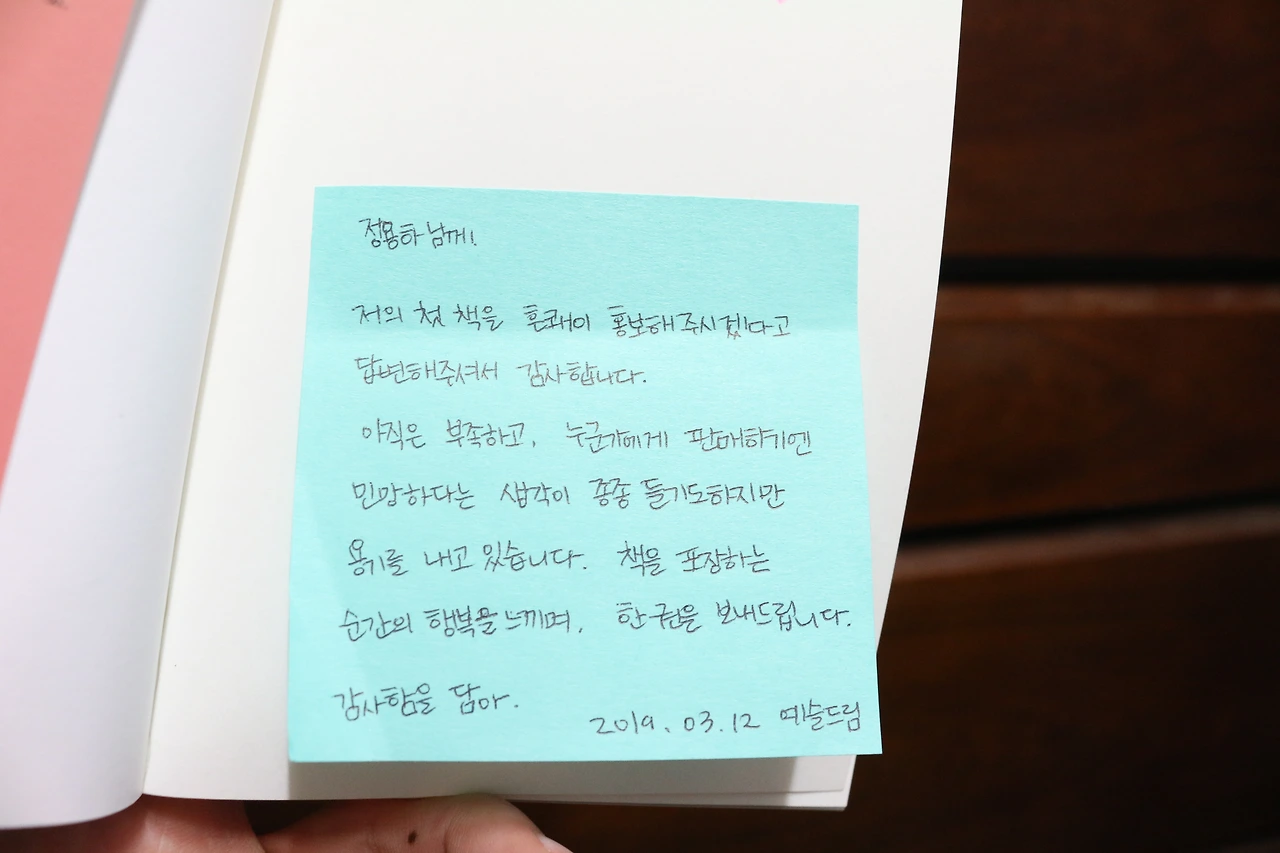 정용하 님께!
저의 첫 책을 흔쾌이 홍보해주시겠다고
답변해주셔서 감사합니다.
아직은 부족하고, 누군가에게 판매하기엔
민망하다는 생각이 종종 들기도하지만
용기를 내고 있습니다. 책을 포장하는
순간의 행복을 느끼며, 한 권을 보내드립니다.
감사함을 담아.
2019.03.12 예슬드림